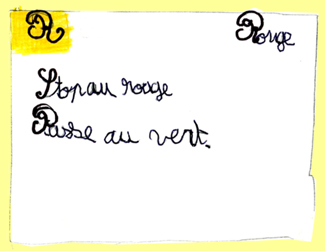 R Rouge
Stop au rouge
Passe au vert.